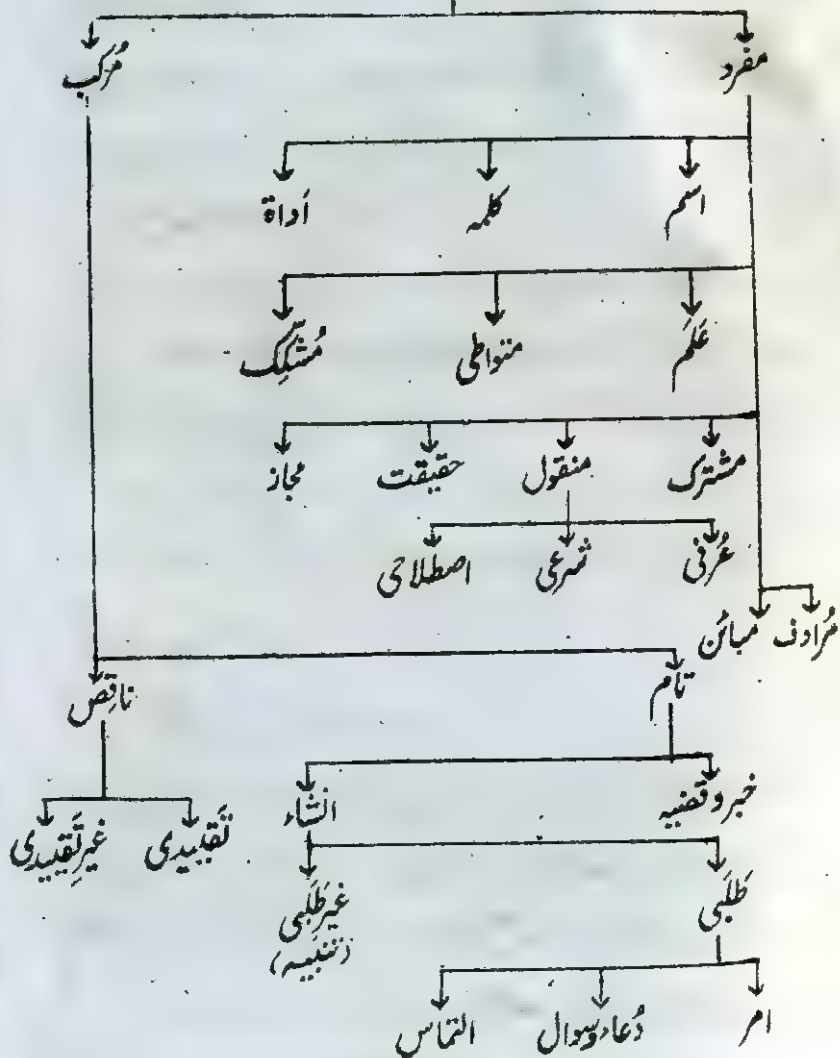 مفرد مُرکّب
اسم کلمہ اَداة
عَلَم متواطی مُشکِّک
مشترک منقول حقیقت مجاز
عُرفی شرعی اصطلاحی
مُرادف مبائن
تام ناقِص
خبر و قضیہ انشاء تَقیِیدی غیر تَقیِیدی
طَلَبی غیر طَلَبی
(تنبیہ)
امر دُعاء و سوال التماس